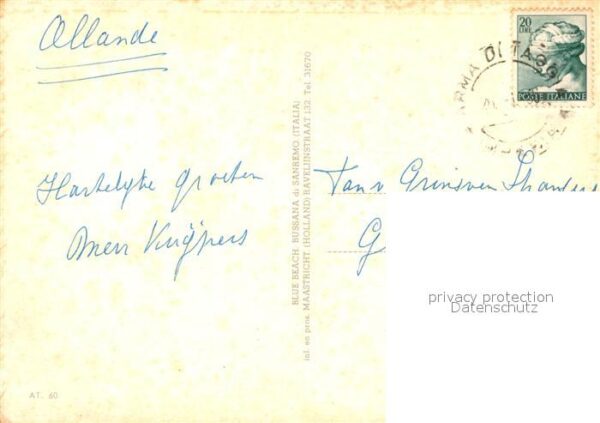 Ollande
20
LIRE
POSTE ITALIANE
ARMA DI TAGG
Hartelijke groeten
Kuijpers
BLUE BEACH. BUSSANA di SANREMO (ITALIA)
MAASTRICHT (HOLLAND) RAVELIJNSTRAAT 132 Tel. 31670
inl. en pros.
Fam v Grinsven
G
privacy protection
Datenschutz
AT. 60